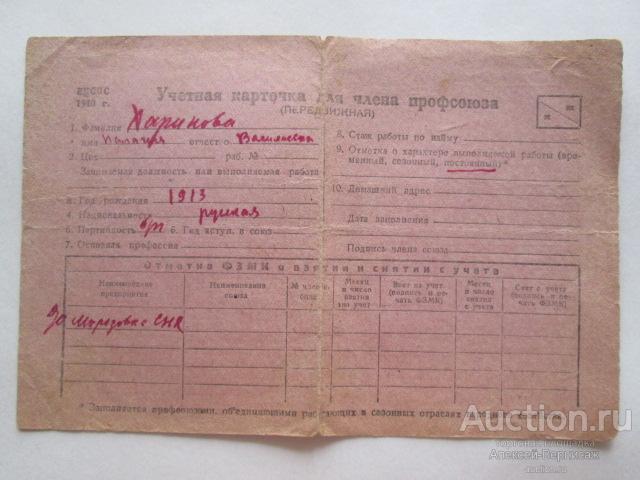 ВЦСПС
1940 г.
Учетная карточка для члена профсоюза
(ПЕРЕДВИЖНАЯ)
1. Фамилия Ларинова
" имя Пелагея отчество Васильевна
2. Цех раб. №
Занимаемая должность или выполняемая работа
3. Год рождения 1913
4. Национальность русская
5. Партийность б/п 6. Год вступ. в союз
7. Основная профессия
8. Стаж работы по найму
9. Отметка о характере выполняемой работы (временный, сезонный, постоянный)*
10. Домашний адрес
Дата заполнения
Подпись члена союза
Отметка ФЗМК о взятии и снятии с учета
Наименование предприятия
Наименование союза
№ член. билета
Месяц и число взятия на учет
Взят на учет (подпись и печать ФЗМК)
Месяц и число снятия с учета
Снят с учета (подпись и печать ФЗМК)
СНК
* Заполняется профсоюзами, объединяющими работающих в сезонных отраслях
Auction.ru
торговая площадка
Алексей-Вернисаж
auction.ru